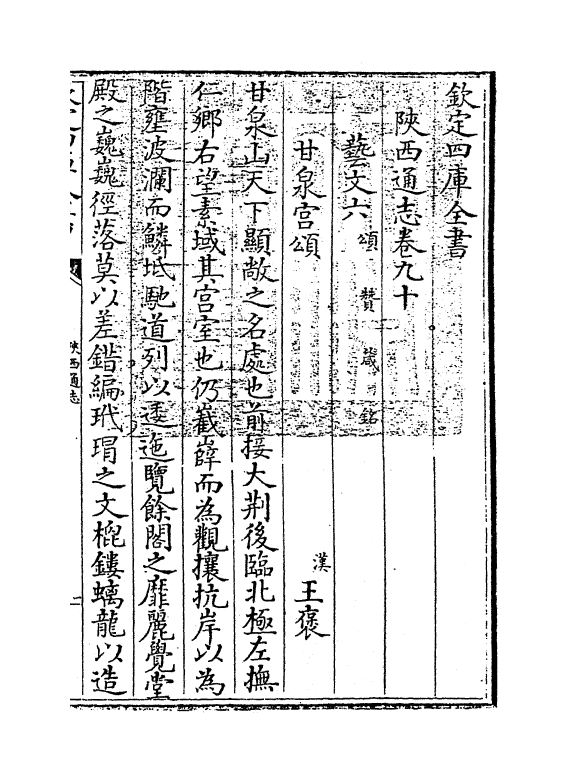 欽定四庫全書
陜西通志卷九十
藝文六 頌 贊 箴 銘
甘泉宫頌 漢 王褒
甘泉山天下顯敞之名處也前接大荆後臨北極左撫
仁鄉右望素域其宫室也仍嶻嶭而為觀攘抗岸以為
階壅波瀾而鱗坻馳道列以逶迤覽餘閣之靡麗覺堂
殿之巍巍徑落莫以差錯編玳瑁之文榥鏤螭龍以造
陜西通志